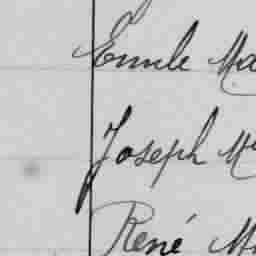 Emile Ma
Joseph M
René M